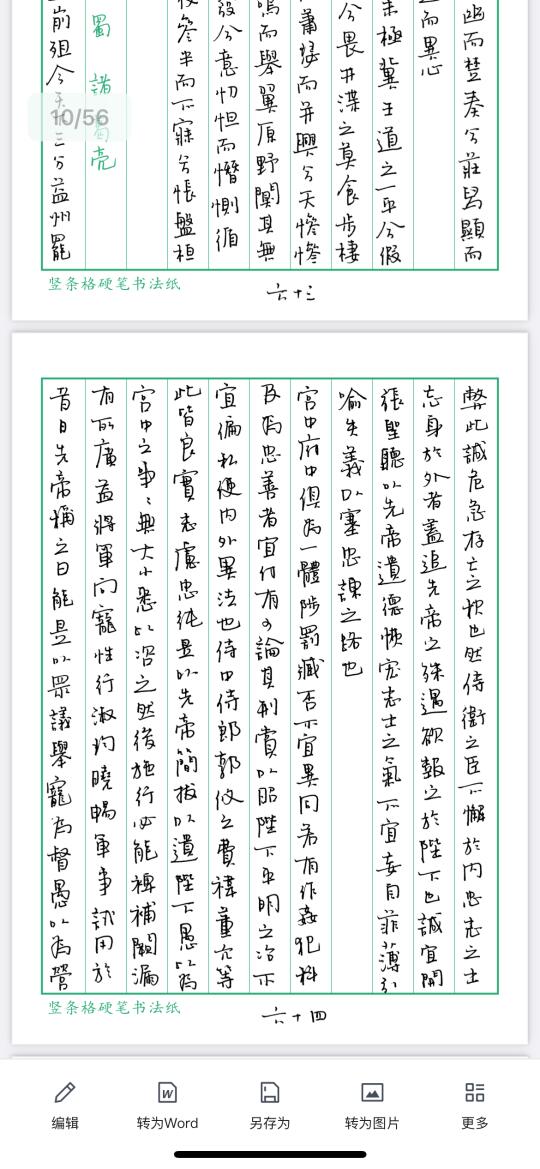 幽而楚奏兮莊舄顯而
而異心
未極冀王道之一平兮假
兮畏井渫之莫食步棲
蕭瑟而並興兮天慘慘
鳴而舉翼原野闃其無
發兮意忉怛而憯惻循
夜參半而不寐兮悵盤桓
蜀 諸葛亮
崩殂今天下三分益州罷
10/56
竖条格硬笔书法纸
六十三
弊此誠危急存亡之秋也然侍衛之臣不懈於内忠志之士
忘身於外者蓋追先帝之殊遇欲報之於陛下也誠宜開
張聖聽以光帝遺德恢宏志士之氣不宜妄自菲薄引
喻失義以塞忠諫之路也
宮中府中俱為一體陟罰臧否不宜異同若有作姦犯科
及為忠善者宜付有司論其刑賞以昭陛下平明之治不
宜偏私使内外異法也侍中侍郎郭攸之費禕董允等
此皆良實志慮忠純是以先帝簡拔以遺陛下愚以為
宮中之事〻無大小悉以咨之然後施行必能裨補闕漏
有所廣益將軍向寵性行淑均曉暢軍事試用於
昔日先帝稱之曰能是以眾議舉寵為督愚以為營
竖条格硬笔书法纸
六十四
编辑
转为Word
另存为
转为图片
更多